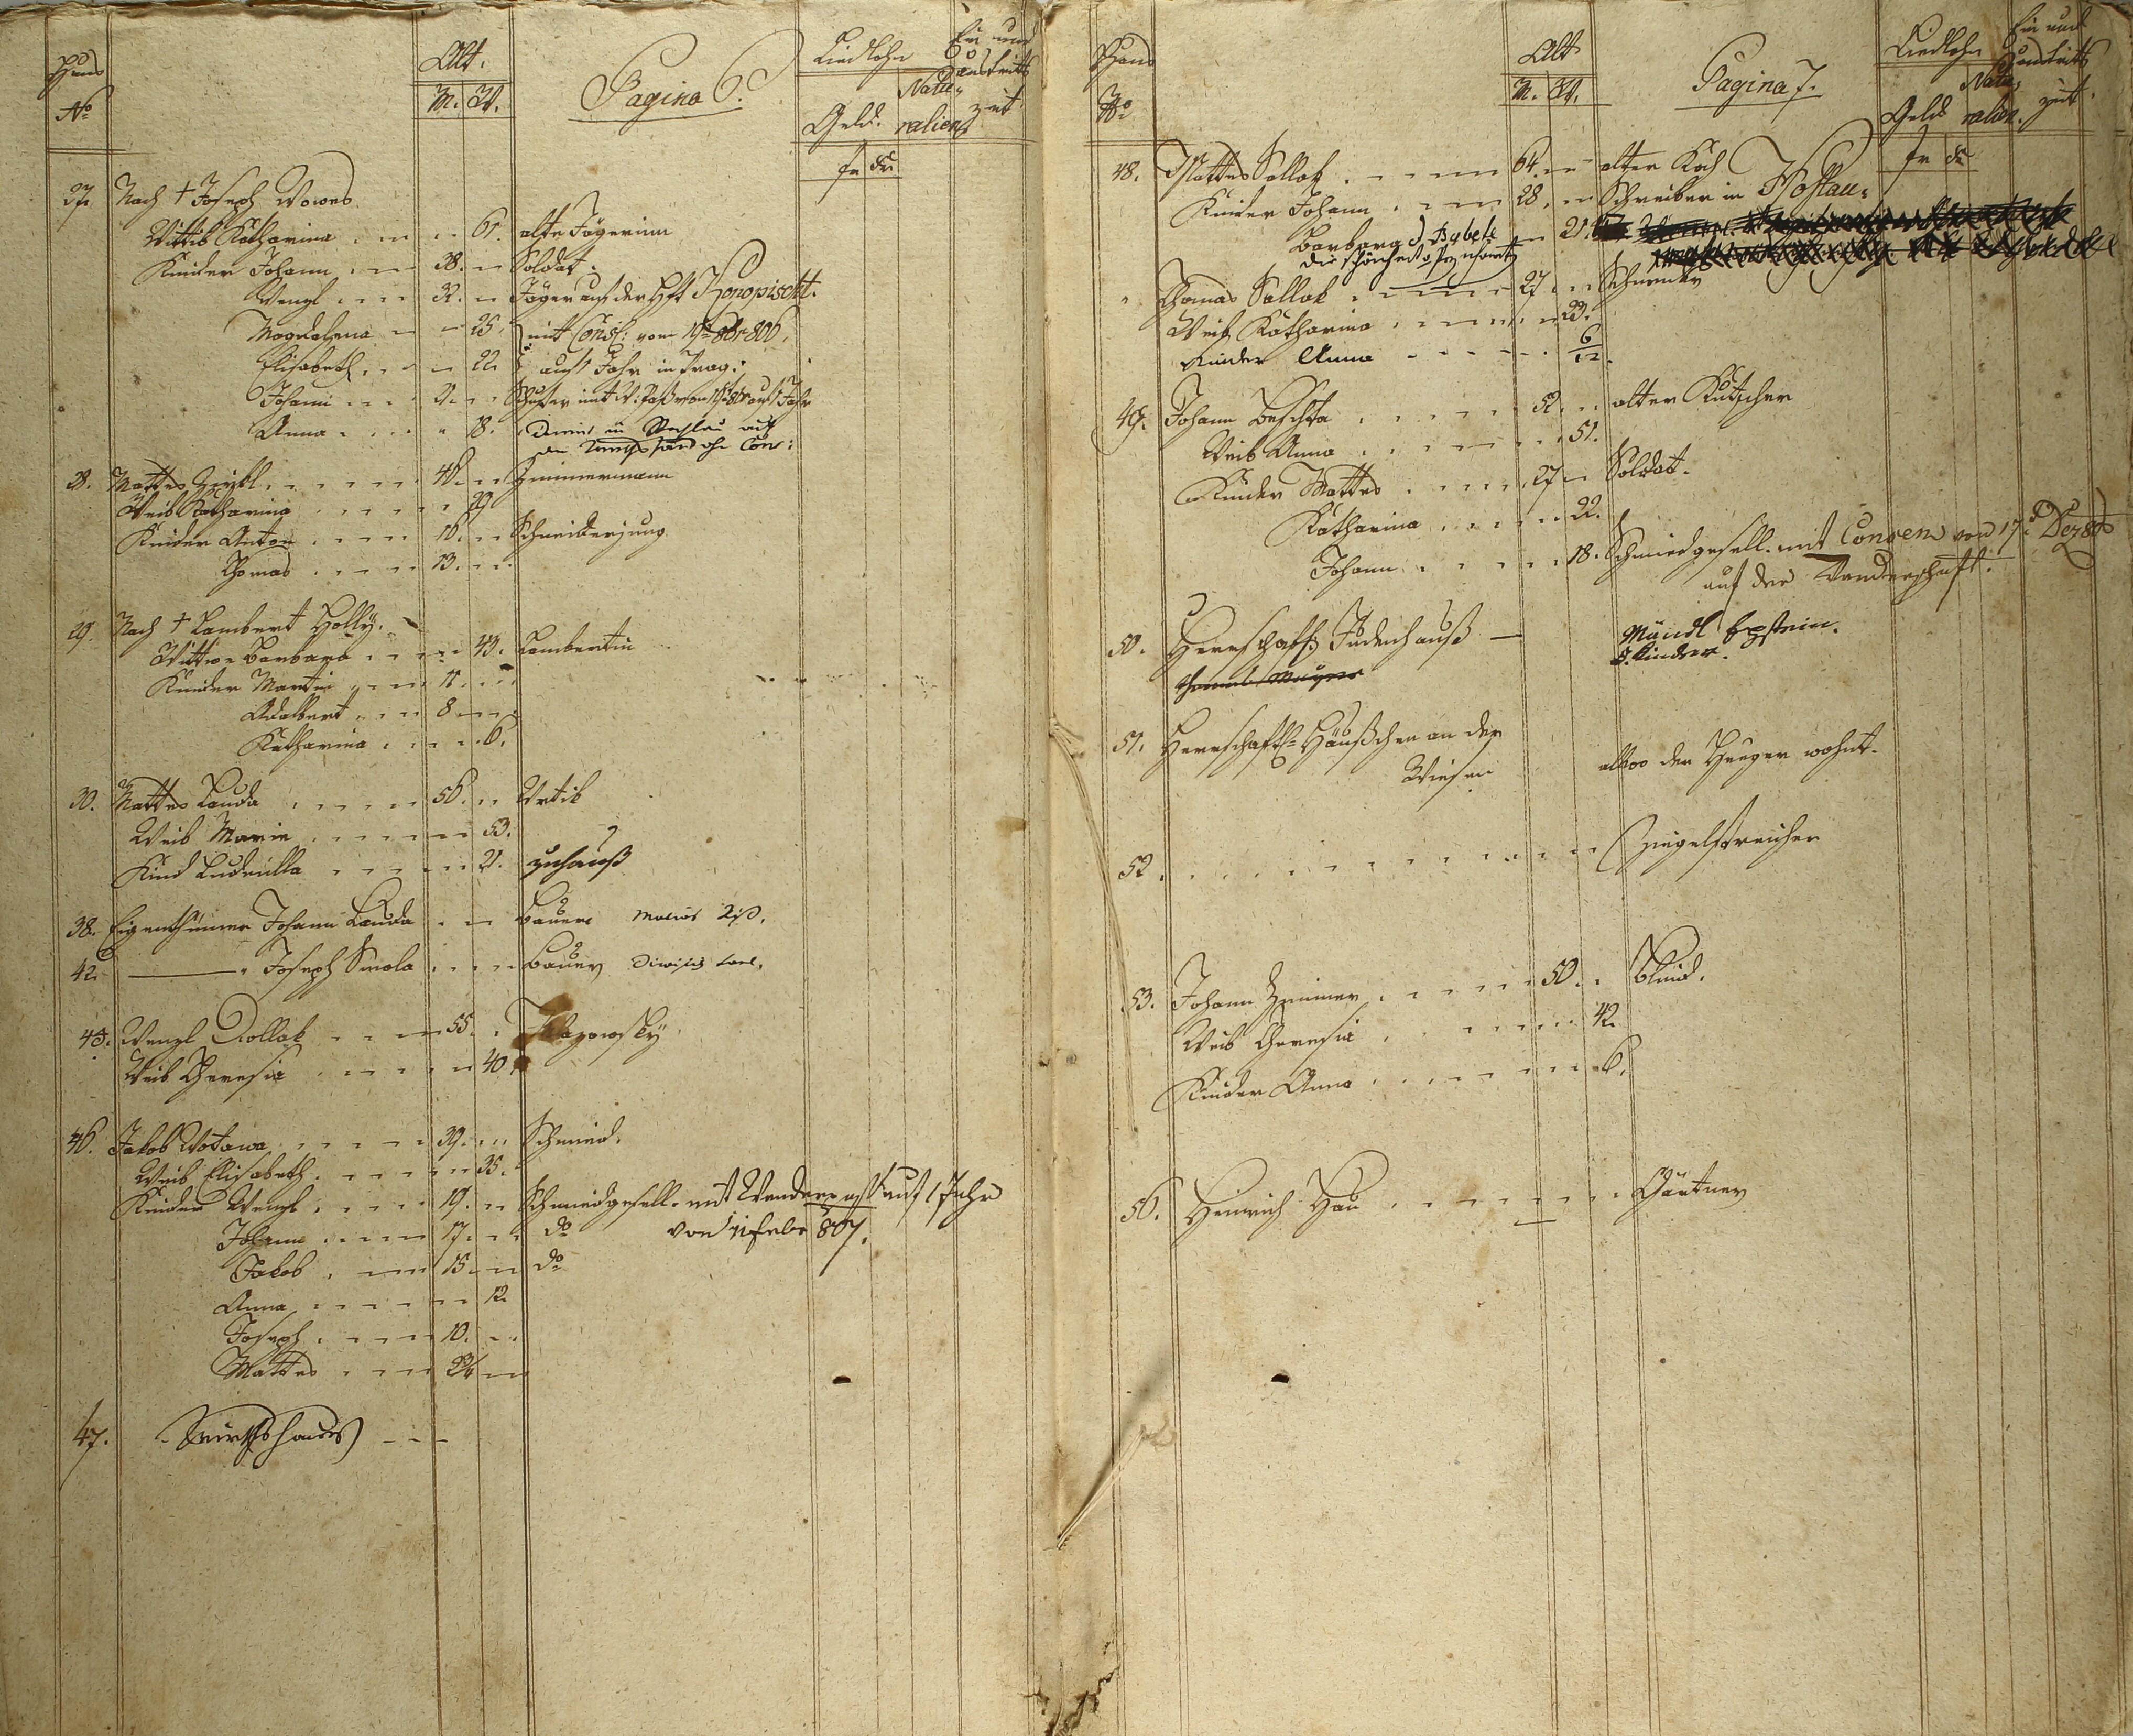 Haus
No
Alt.
M. W.
Pagina 6.
Liedlohn
Ein und
Austritts
Natu-
Geld. ralien zeit.
fr xr
27. Nach † Joseph Wowes
Wittib Katharina 61. alte Jägerinn
Kinder Johann 38. Soldat.
Wenzl 32. Jäger auf der Hft Konopischt.
Magdalena 25 mit Cons: vom 19t 8br 806.
Elisabeth 22 auf 1 Jahr in Prag:
Johann 21 auf 1 Jahr
Anna 18.
28. Mattes 46. Zimmermann
Weib Katharina 39
Kinder Anton 16. Schneiderjung
Thomas 13.
29. Nach † Lambert Holly.
Wittwe Barbara 43. Lambertin
Kinder Martin 11.
Adalbert 8
Katharina 6.
30. Mattes Lauda 56.
Weib Marie 53.
Kind Ludmilla 21. zuhauß
38. Eigenthümer Johann Lauda Bauer
42. " Joseph Smola Bauer
43. Wenzl Kollak 55.
Weib Theresia 40
46. Jakob Wotawa 39. Schmied.
Weib Elisabeth 35.
Kinder Wenzl 19. Schmiedgesell. mit Wanderpaß auf 1 Jahr
Johann 17. do von 11 Febr 807.
Jakob 15 do
Anna 12
Joseph 10.
Mattes
47. Wirthshaus
Haus
No
Alt
M. W.
Pagina 7.
Liedlohn
Ein und
Austritts
Natu-
Geld ralien. zeit.
fr xr
48. Mattes Sallak 64. alter Koch
Kinder Johann 28. Schreiber in Hostau.
Barbara 21.
" Thomas Sallak 27
Weib Katharina 23.
Kinder Anna 6/12.
49. Johann 52. alter Kutscher
Weib Anna 51.
Kinder Mattes 27 Soldat.
Katharina 22.
Johann 18. Schmiedgesell. mit Consens von 17t Dez 806
auf der Wanderschaft.
50. Herrschaft: Judenhauß — Mändl Epstein.
3. Kinder.
51. Herrschaftl= Häußchen an der
Wiesen allwo der Heger wohnt.
52. Ziegelstreicher
53. Johann Zimmer 50. Blind.
Weib Theresia 42
Kinder Anna 6.
56. Heinrich Hau Gärtner